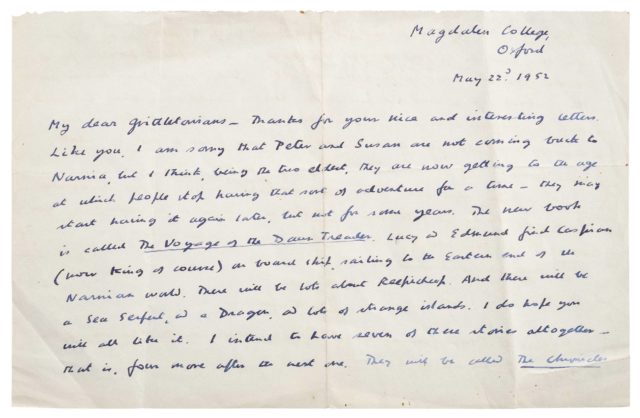 Magdalen College,
Oxford
May 22d. 1952
My dear Grittletonians – Thanks for your nice and interesting letters.
Like you, I am sorry that Peter and Susan are not coming back to
Narnia, but I think, being the two eldest, they are now getting to the age
at which people stop having that sort of adventure for a time – they may
start having it again later, but not for some years. The new book
is called The Voyage of the Dawn Treader. Lucy & Edmund find Caspian
(now King of course) on board ship, sailing to the Eastern end of the
Narnian world. There will be lots about Reepicheep. And there will be
a Sea Serpent, & a Dragon, & lots of strange islands. I do hope you
will all like it. I intend to have seven of these stories altogether –
that is, four more after the next one. They will be called The Chronicles